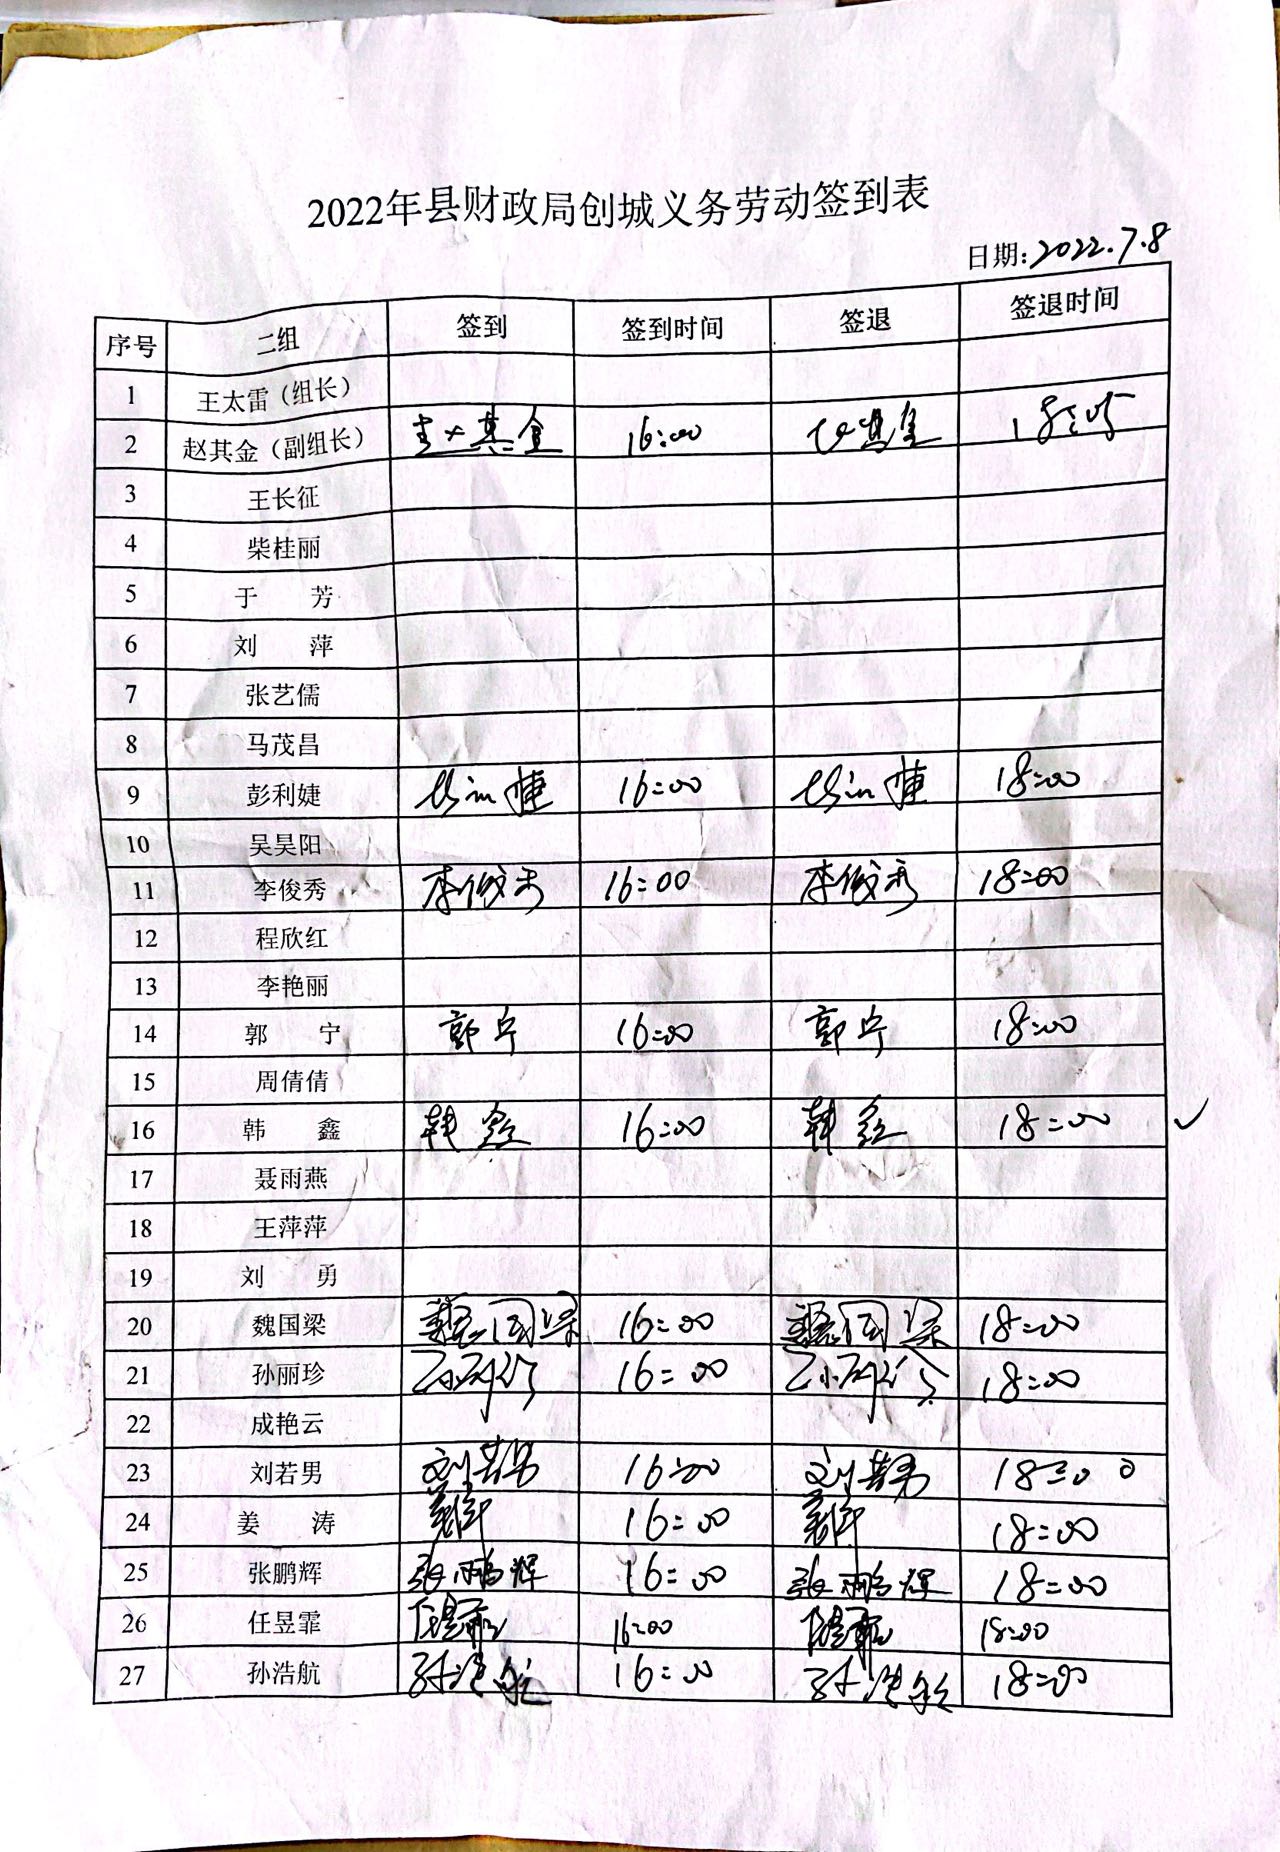 2022年县财政局创城义务劳动签到表
日期:2022.7.8
序号 二组 签到 签到时间 签退 签退时间
1 王太雷（组长）
2 赵其金（副组长） 赵其金 16:00 赵其金
3 王长征
4 柴桂丽
5 于 芳
6 刘 萍
7 张艺儒
8 马茂昌
9 彭利婕 16:00 18:00
10 吴昊阳
11 李俊秀 李俊秀 16:00 李俊秀 18:00
12 程欣红
13 李艳丽
14 郭 宁 郭宁 16:00 郭宁 18:00
15 周倩倩
16 韩 鑫 韩鑫 16:00 韩鑫 18:00 ✓
17 聂雨燕
18 王萍萍
19 刘 勇
20 魏国梁 魏国梁 16:00 魏国梁 18:00
21 孙丽珍 孙丽珍 16:00 孙丽珍 18:00
22 成艳云
23 刘若男 刘若男 16:00 刘若男 18:00
24 姜 涛 姜涛 16:00 姜涛 18:00
25 张鹏辉 张鹏辉 16:00 张鹏辉 18:00
26 任昱霏 任昱霏 16:00 任昱霏 18:00
27 孙浩航 孙浩航 16:00 孙浩航 18:00